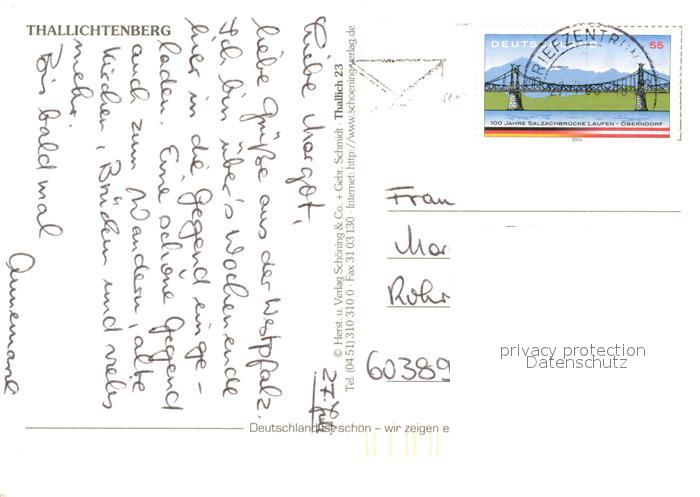 THALLICHTENBERG
Liebe Margot,
liebe Grüße aus der Westpfalz.
Ich bin über's Wochenende
hier in die Gegend einge-
laden. Eine schöne Gegend
auch zum Wandern, alte
Kirchen, Brücken und vieles
mehr.
Bis bald mal
Annemarie
27.
© Herst. u. Verlag Schöning & Co. + Gebr. Schmidt · Thallich 23
Tel. (04 51) 310 310 0 · Fax 31 03 130 · Internet: http://www.schoeningverlag.de
Deutschland ist schön – wir zeigen e
BRIEFZENTRUM
DEUTSCHLAND 55
100 JAHRE SALZACHBRÜCKE LAUFEN - OBERNDORF
2003
Frau
Mar
Rohr
60389
privacy protection
Datenschutz